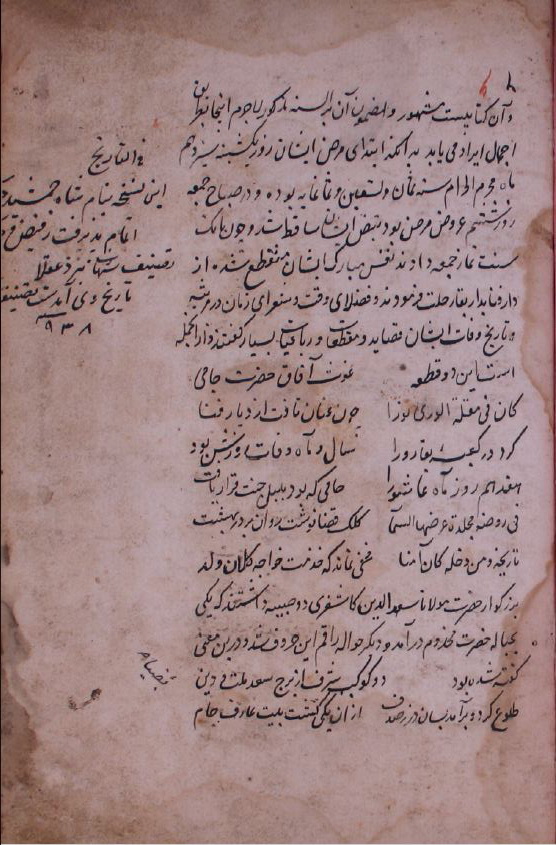 و آن کتابیست مشهور و مضمون آن بر السنه مذکور لاجرم اینجا بطریق
اجمال ایراد می یابد بدانکه ابتدای مرض ایشان روز یکشنبه سیزدهم
ماه محرم الحرام سنه ثمان و تسعین و ثمانمایه بوده و در صباح جمعه
روز ششم عروض مرض بود نبض ایشان ساقط شد و چون بانک
سنت نماز جمعه دادند نفس مبارک ایشان منقطع شده از
دار فنا بدار بقا رحلت فرمودند و فضلای وقت و شعرای زمان در مرثیه
و تاریخ وفات ایشان قصاید و مقطعات و رباعیات بسیار گفتند و از آنجمله
است این دو قطعه غوث آفاق حضرت جامی
کان فی مقلة الوری نورا چون عنان تافت از دیار فنا
کرد در کعبه بقا رو را سال و ماه وفات و روزش بود
هفدهم روز ماه عاشورا جامی که بود بلبل جنت قرار یافت
فی روضة مخلدة عرضها السما کلک قضا نوشت روان بر در بهشت
تاریخه و من دخله کان آمنا مخفی نماند که خدمت خواجه کلان ولد
بزرگوار حضرت مولانا سعد الدین کاشغری دو صبیه داشتند که یکی
بحباله حضرت مخدوم درآمد و دیگر حواله راقم این حروف شد و درین معنی
گفته شده بود دو کوکب شرف از برج سعد ملت و دین
طلوع کرد و برآمد بسان در ز صدف از آن یکی گشت بیت عارف جام
فی التاریخ
این نسخه بنام شاه جمشید
اتمام پذیرفت ز فیض
تصنیف نزد عقلا
تاریخ وی آمدست تصنیف
٩٣٨
بضیاء